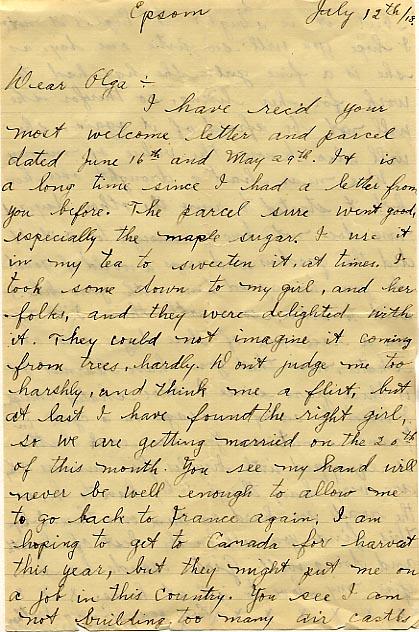 Epsom July 12th/18.
Dear Olga :-
I have rec'd your
most welcome letter and parcel
dated June 16th and May 29th. It is
a long time since I had a letter from
you before. The parcel sure went good,
especially the maple sugar. I use it
in my tea to sweeten it, at times. I
took some down to my girl, and her
folks, and they were delighted with
it. They could not imagine it coming
from trees, hardly. Won't judge me too
harshly, and think me a flirt, but
at last I have found the right girl,
so we are getting married on the 20th
of this month. You see my hand will
never be well enough to allow me
to go back to France again. I am
hoping to get to Canada for harvest
this year, but they might put me on
a job in this country. You see I am
not building too many air castles